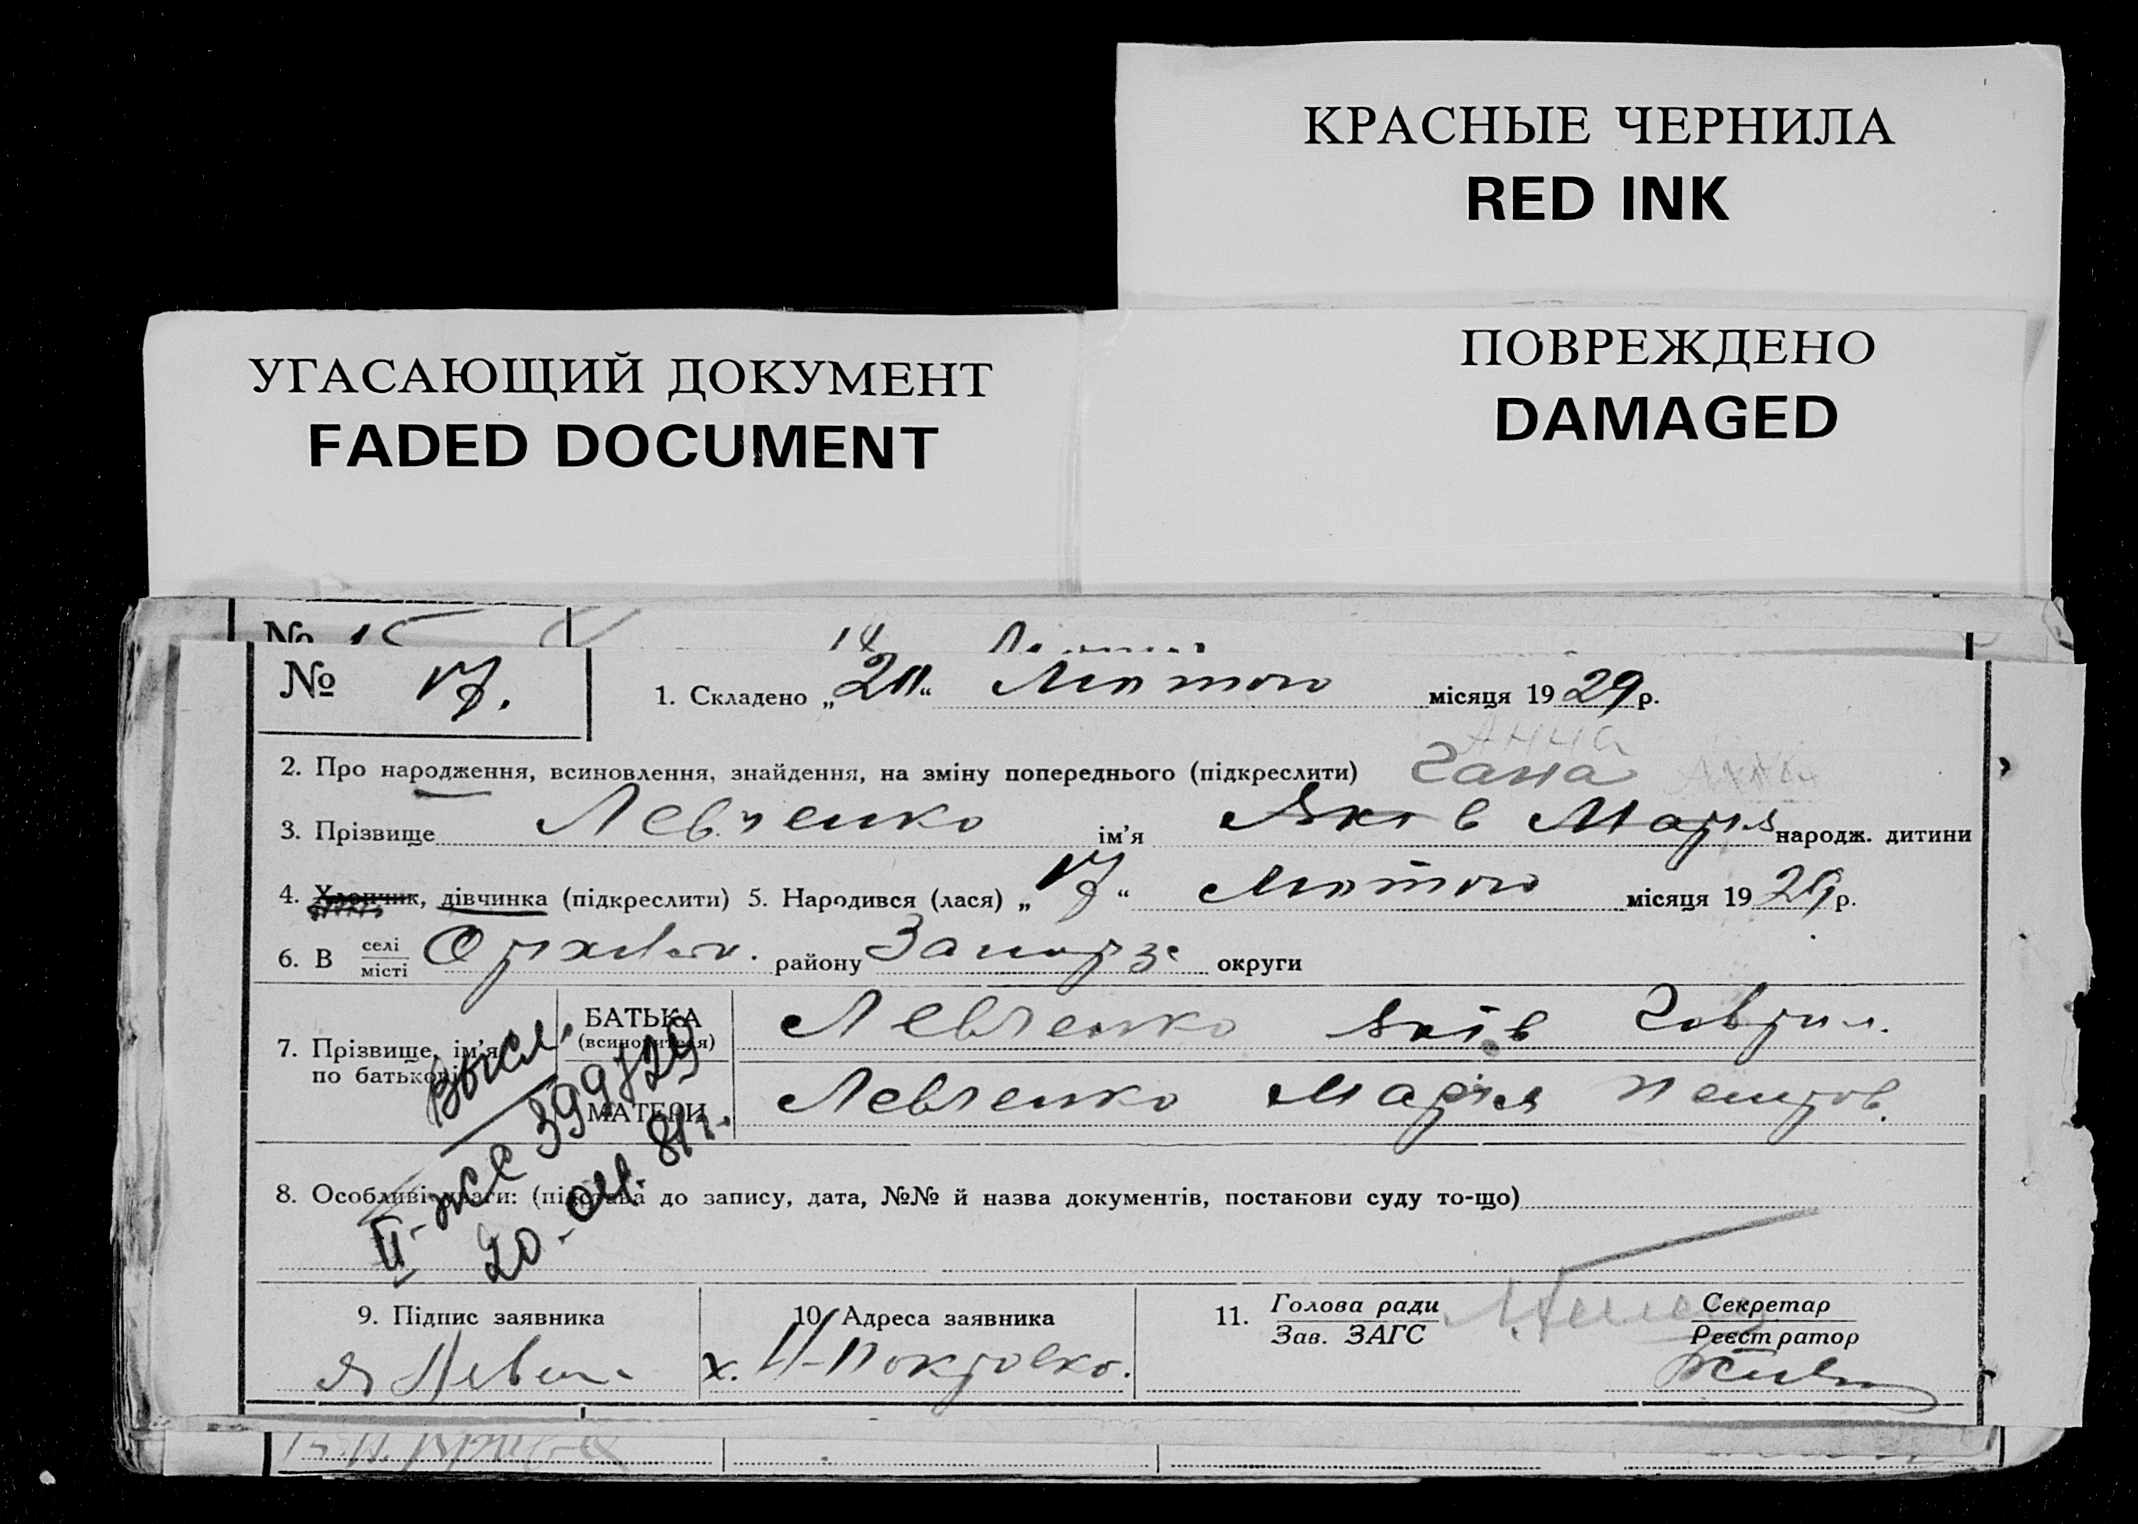 КРАСНЫЕ ЧЕРНИЛА
RED INK
УГАСАЮЩИЙ ДОКУМЕНТ
FADED DOCUMENT
ПОВРЕЖДЕНО
DAMAGED
№ 17.
1. Складено „20“ Лютого місяця 1929 р.
Анна
2. Про народження, всиновлення, знайдення, на зміну попереднього (підкреслити) Гана
3. Прізвище Левченко ім’я Яків Марія народж. дитини
4. Хлопчик, дівчинка (підкреслити) 5. Народився (лася) „17“ Лютого місяця 1929 р.
6. В селі/місті Оріхівськ. району Запоріз округи
7. Прізвище, ім’я по батькові
БАТЬКА (всиновителя) Левченко Яків Гаврил.
МАТЕРИ Левченко Марія Петров.
Высл.
II-ЖС 399729
20- 81г.
8. Особливі уваги: (підстава до запису, дата, №№ й назва документів, постанови суду то-що)
9. Підпис заявника
10. Адреса заявника
11. Голова ради / Зав. ЗАГС
Секретар / Реєстратор
х. Н-Покровка.